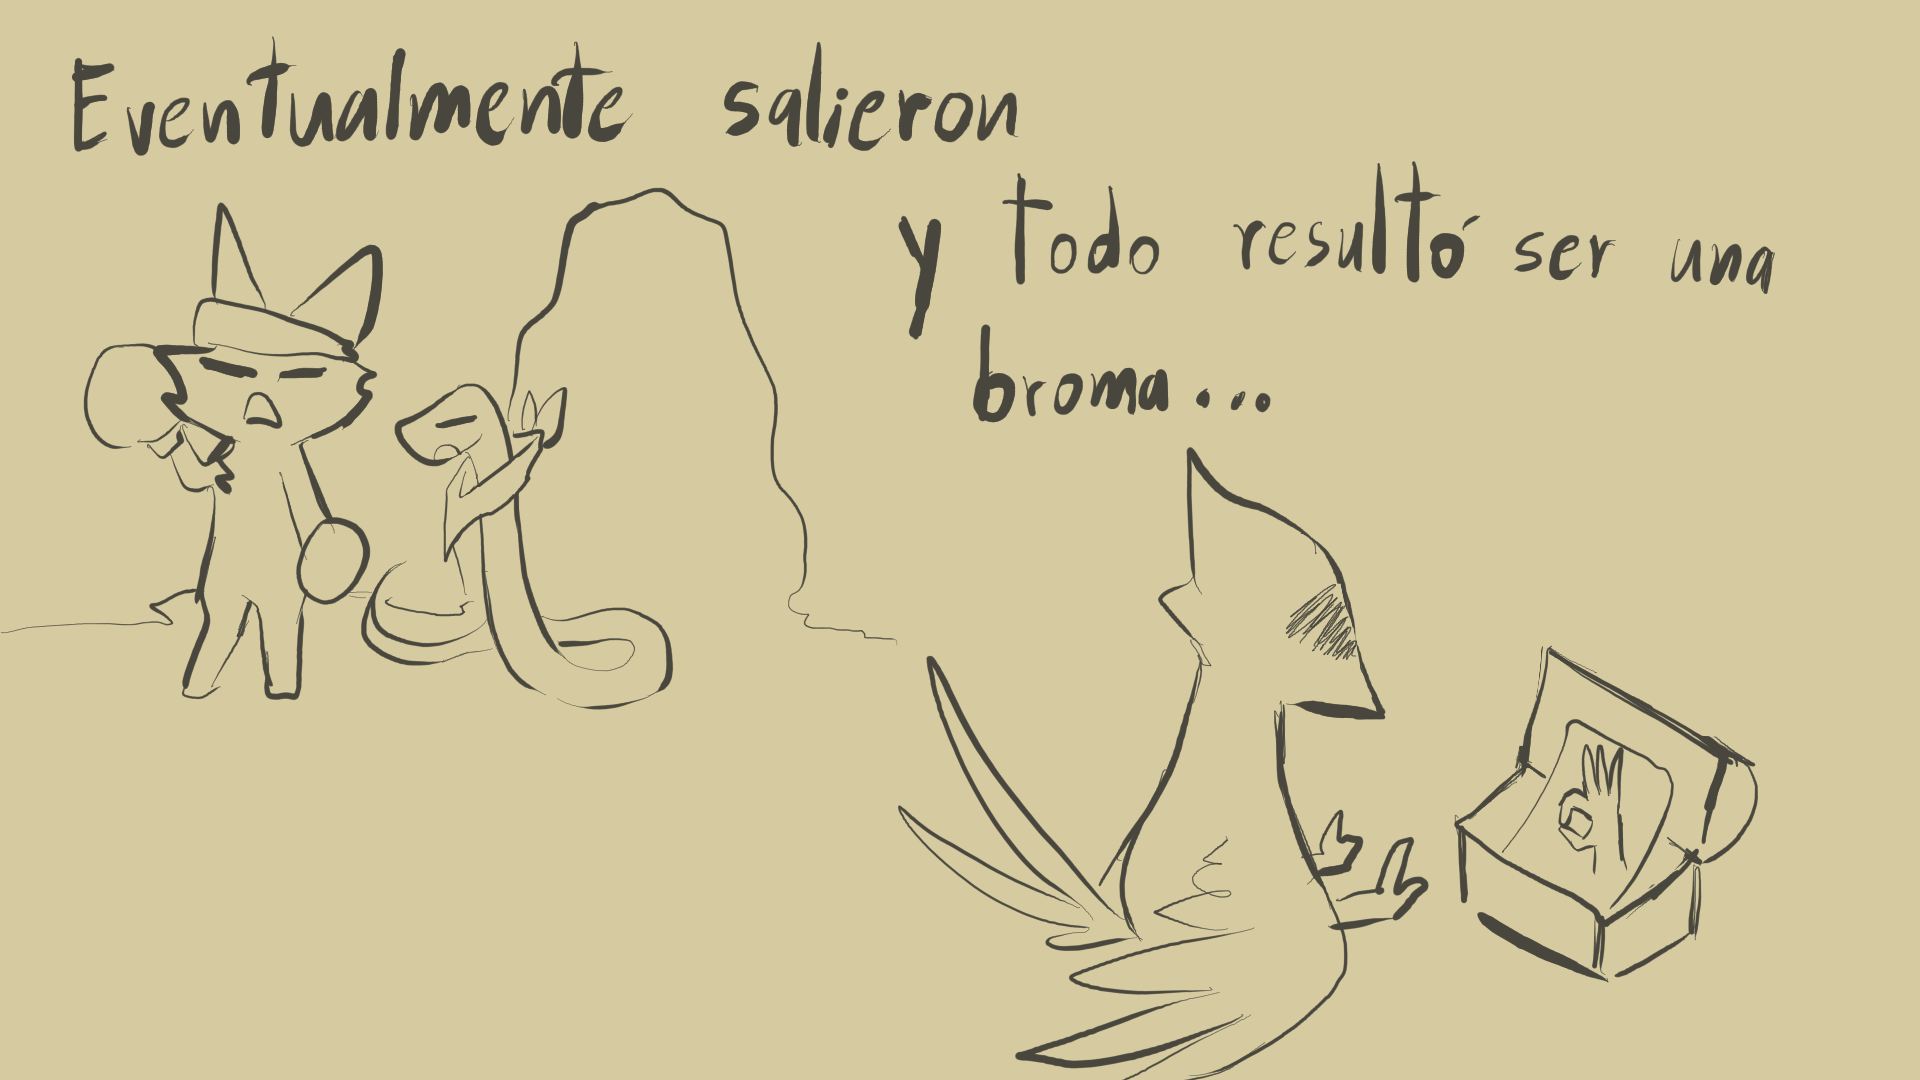 Eventualmente salieron
y todo resultó ser una
broma...